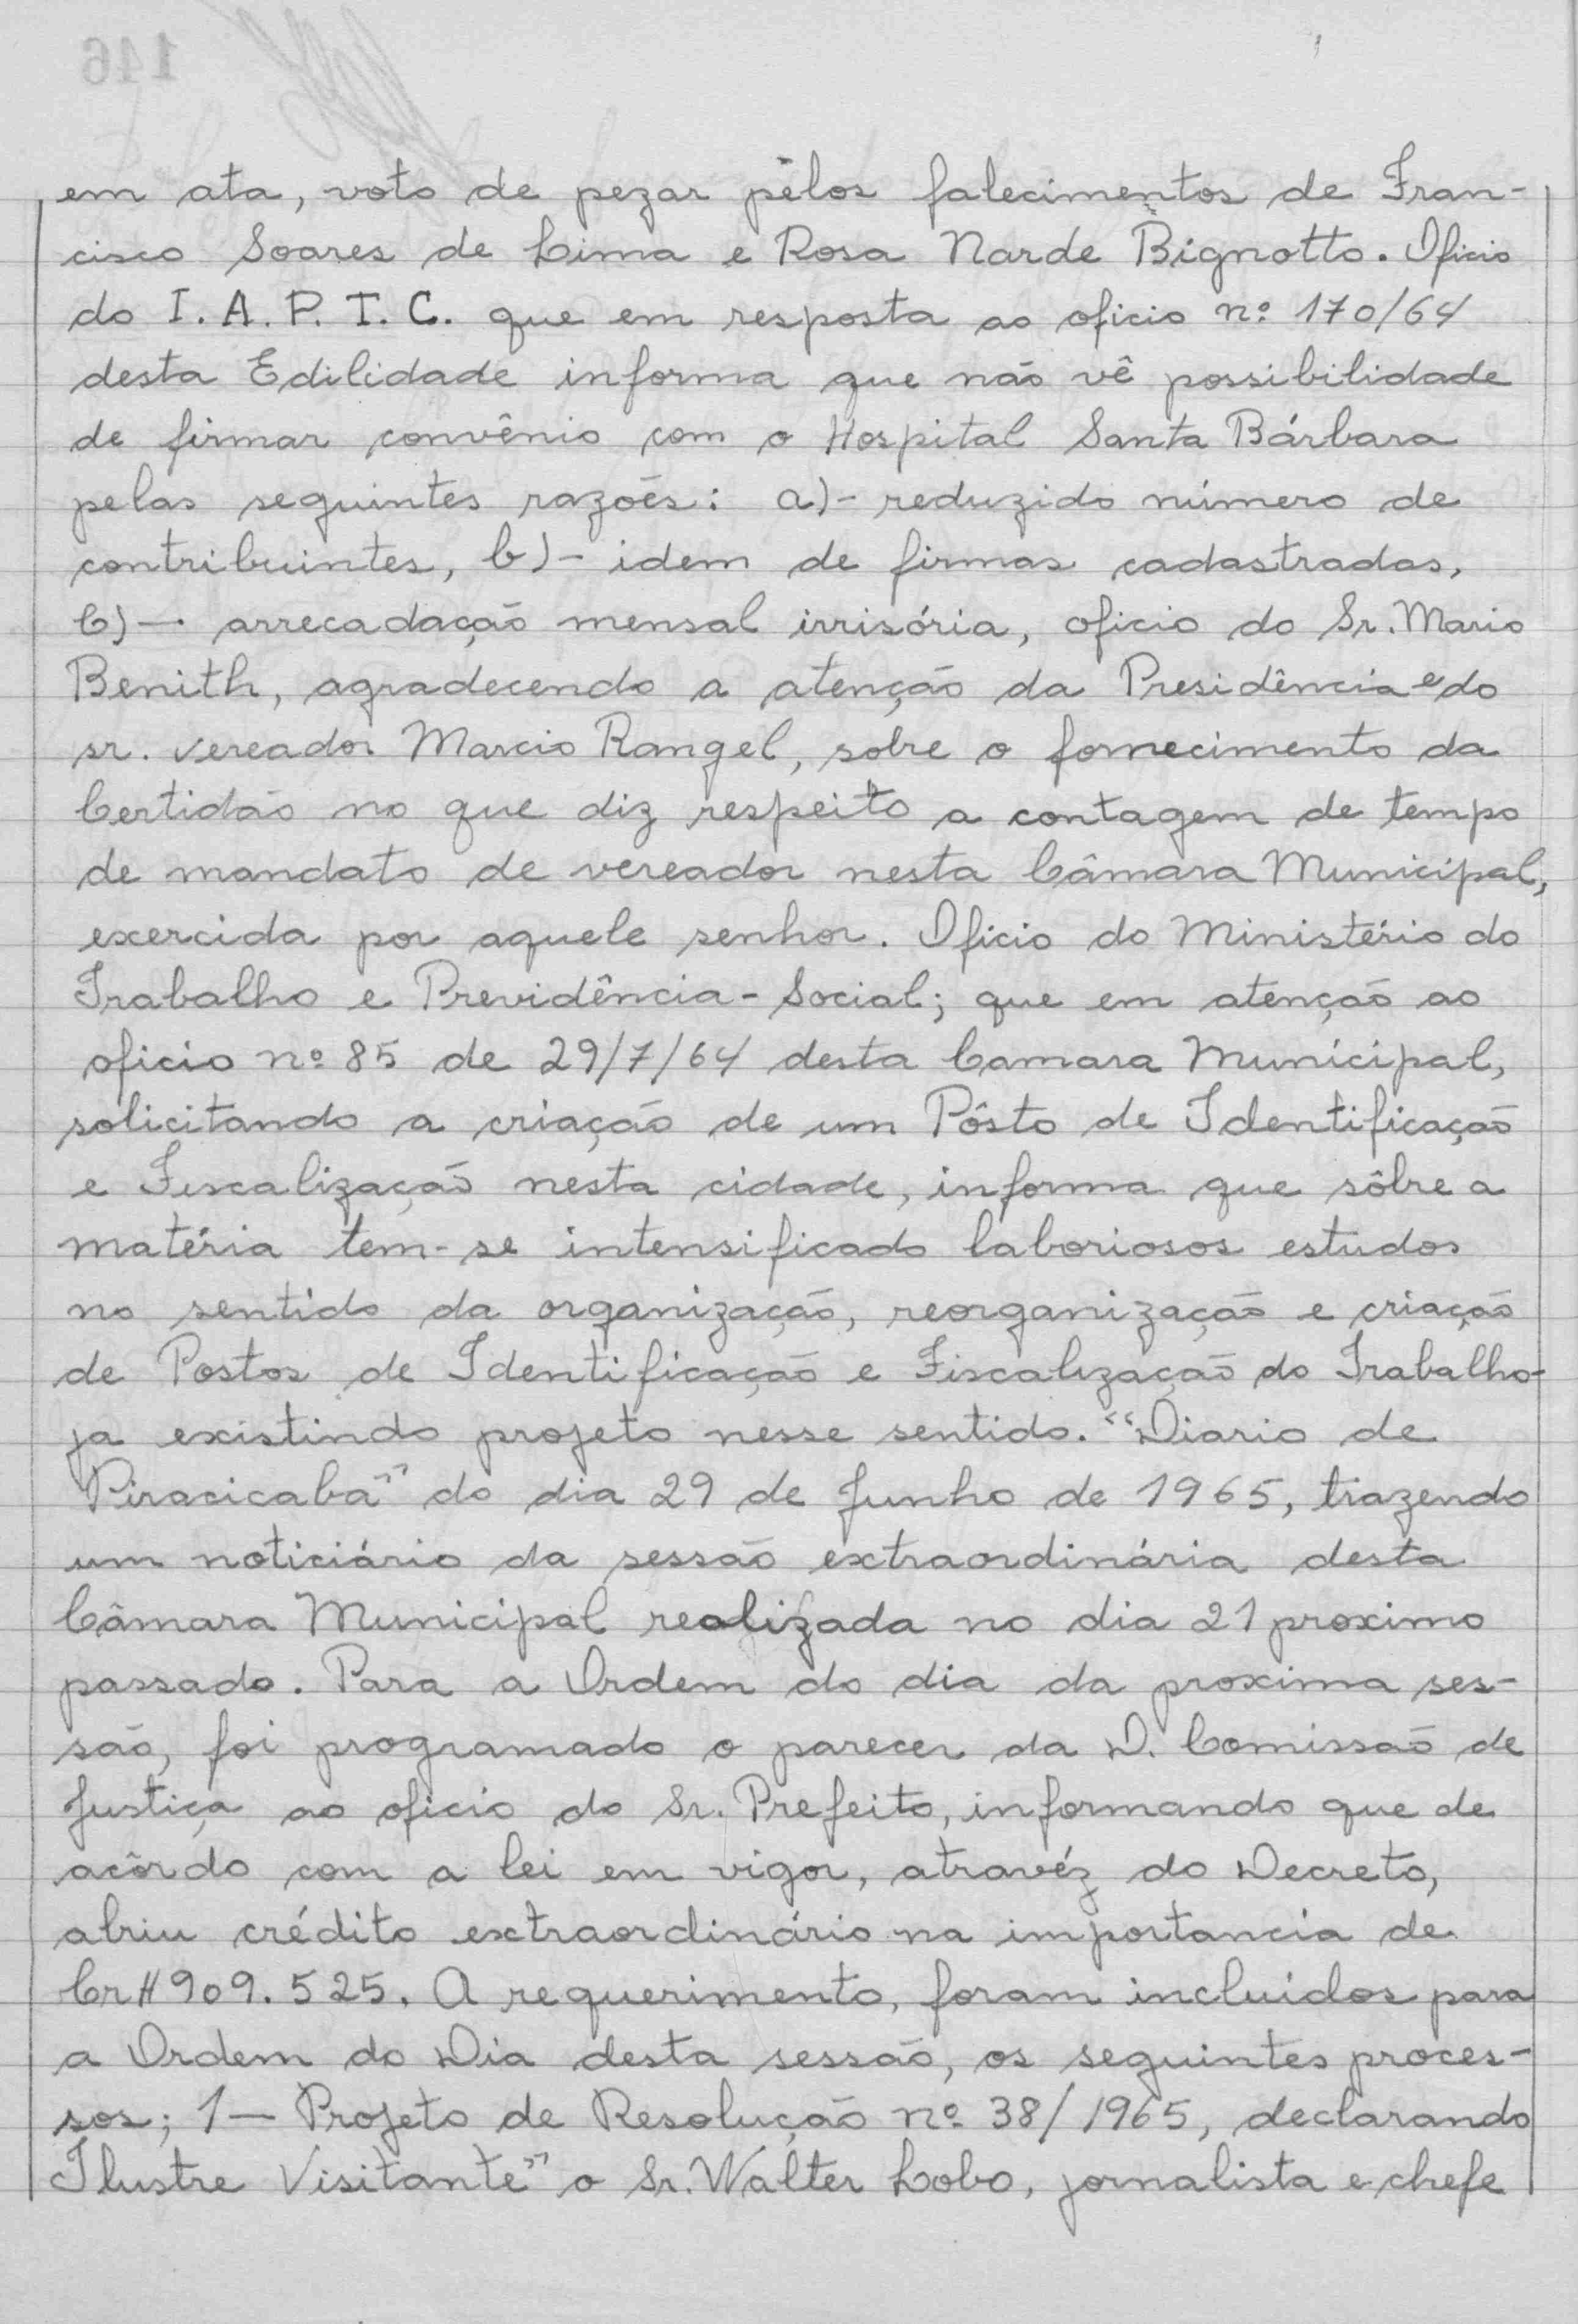 em ata, voto de pezar pêlos falecimentos de Fran-
cisco Soares de Lima e Rosa Narde Bignotto. Oficio
do I. A. P. T. C. que em resposta ao oficio nº 170/64
desta Edilidade informa que não vê possibilidade
de firmar convênio com o Hospital Santa Bárbara
pelas seguintes razões: a)- reduzido número de
contribuintes, b)- idem de firmas cadastradas,
C)- arrecadação mensal irrisória, oficio do Sr. Mario
Benith, agradecendo a atenção da Presidência e do
sr. vereador Marcio Rangel, sobre o fornecimento da
Certidão no que diz respeito a contagem de tempo
de mandato de vereador nesta Câmara Municipal,
exercida por aquele senhor. Oficio do Ministério do
Trabalho e Previdência-Social; que em atenção ao
oficio nº 85 de 29/7/64 desta Camara Municipal,
solicitando a criação de um Pôsto de Identificação
e Fiscalização nesta cidade, informa que sôbre a
matéria tem-se intensificado laboriosos estudos
no sentido da organização, reorganização e criação
de Postos de Identificação e Fiscalização do Trabalho-
ja existindo projeto nesse sentido. "Diario de
Piracicaba" do dia 29 de Junho de 1965, trazendo
um noticiário da sessão extraordinária desta
Câmara Municipal realizada no dia 21 proximo
passado. Para a Ordem do dia da proxima ses-
são, foi programado o parecer da D. Comissão de
Justiça ao oficio do Sr. Prefeito, informando que de
acôrdo com a lei em vigor, atravéz do Decreto,
abriu crédito extraordinário na importancia de
Cr# 909.525. A requerimento, foram incluidos para
a Ordem do Dia desta sessão, os seguintes proces-
sos; 1- Projeto de Resolução nº 38/1965, declarando
Ilustre Visitante" o Sr. Walter Lobo, jornalista e chefe